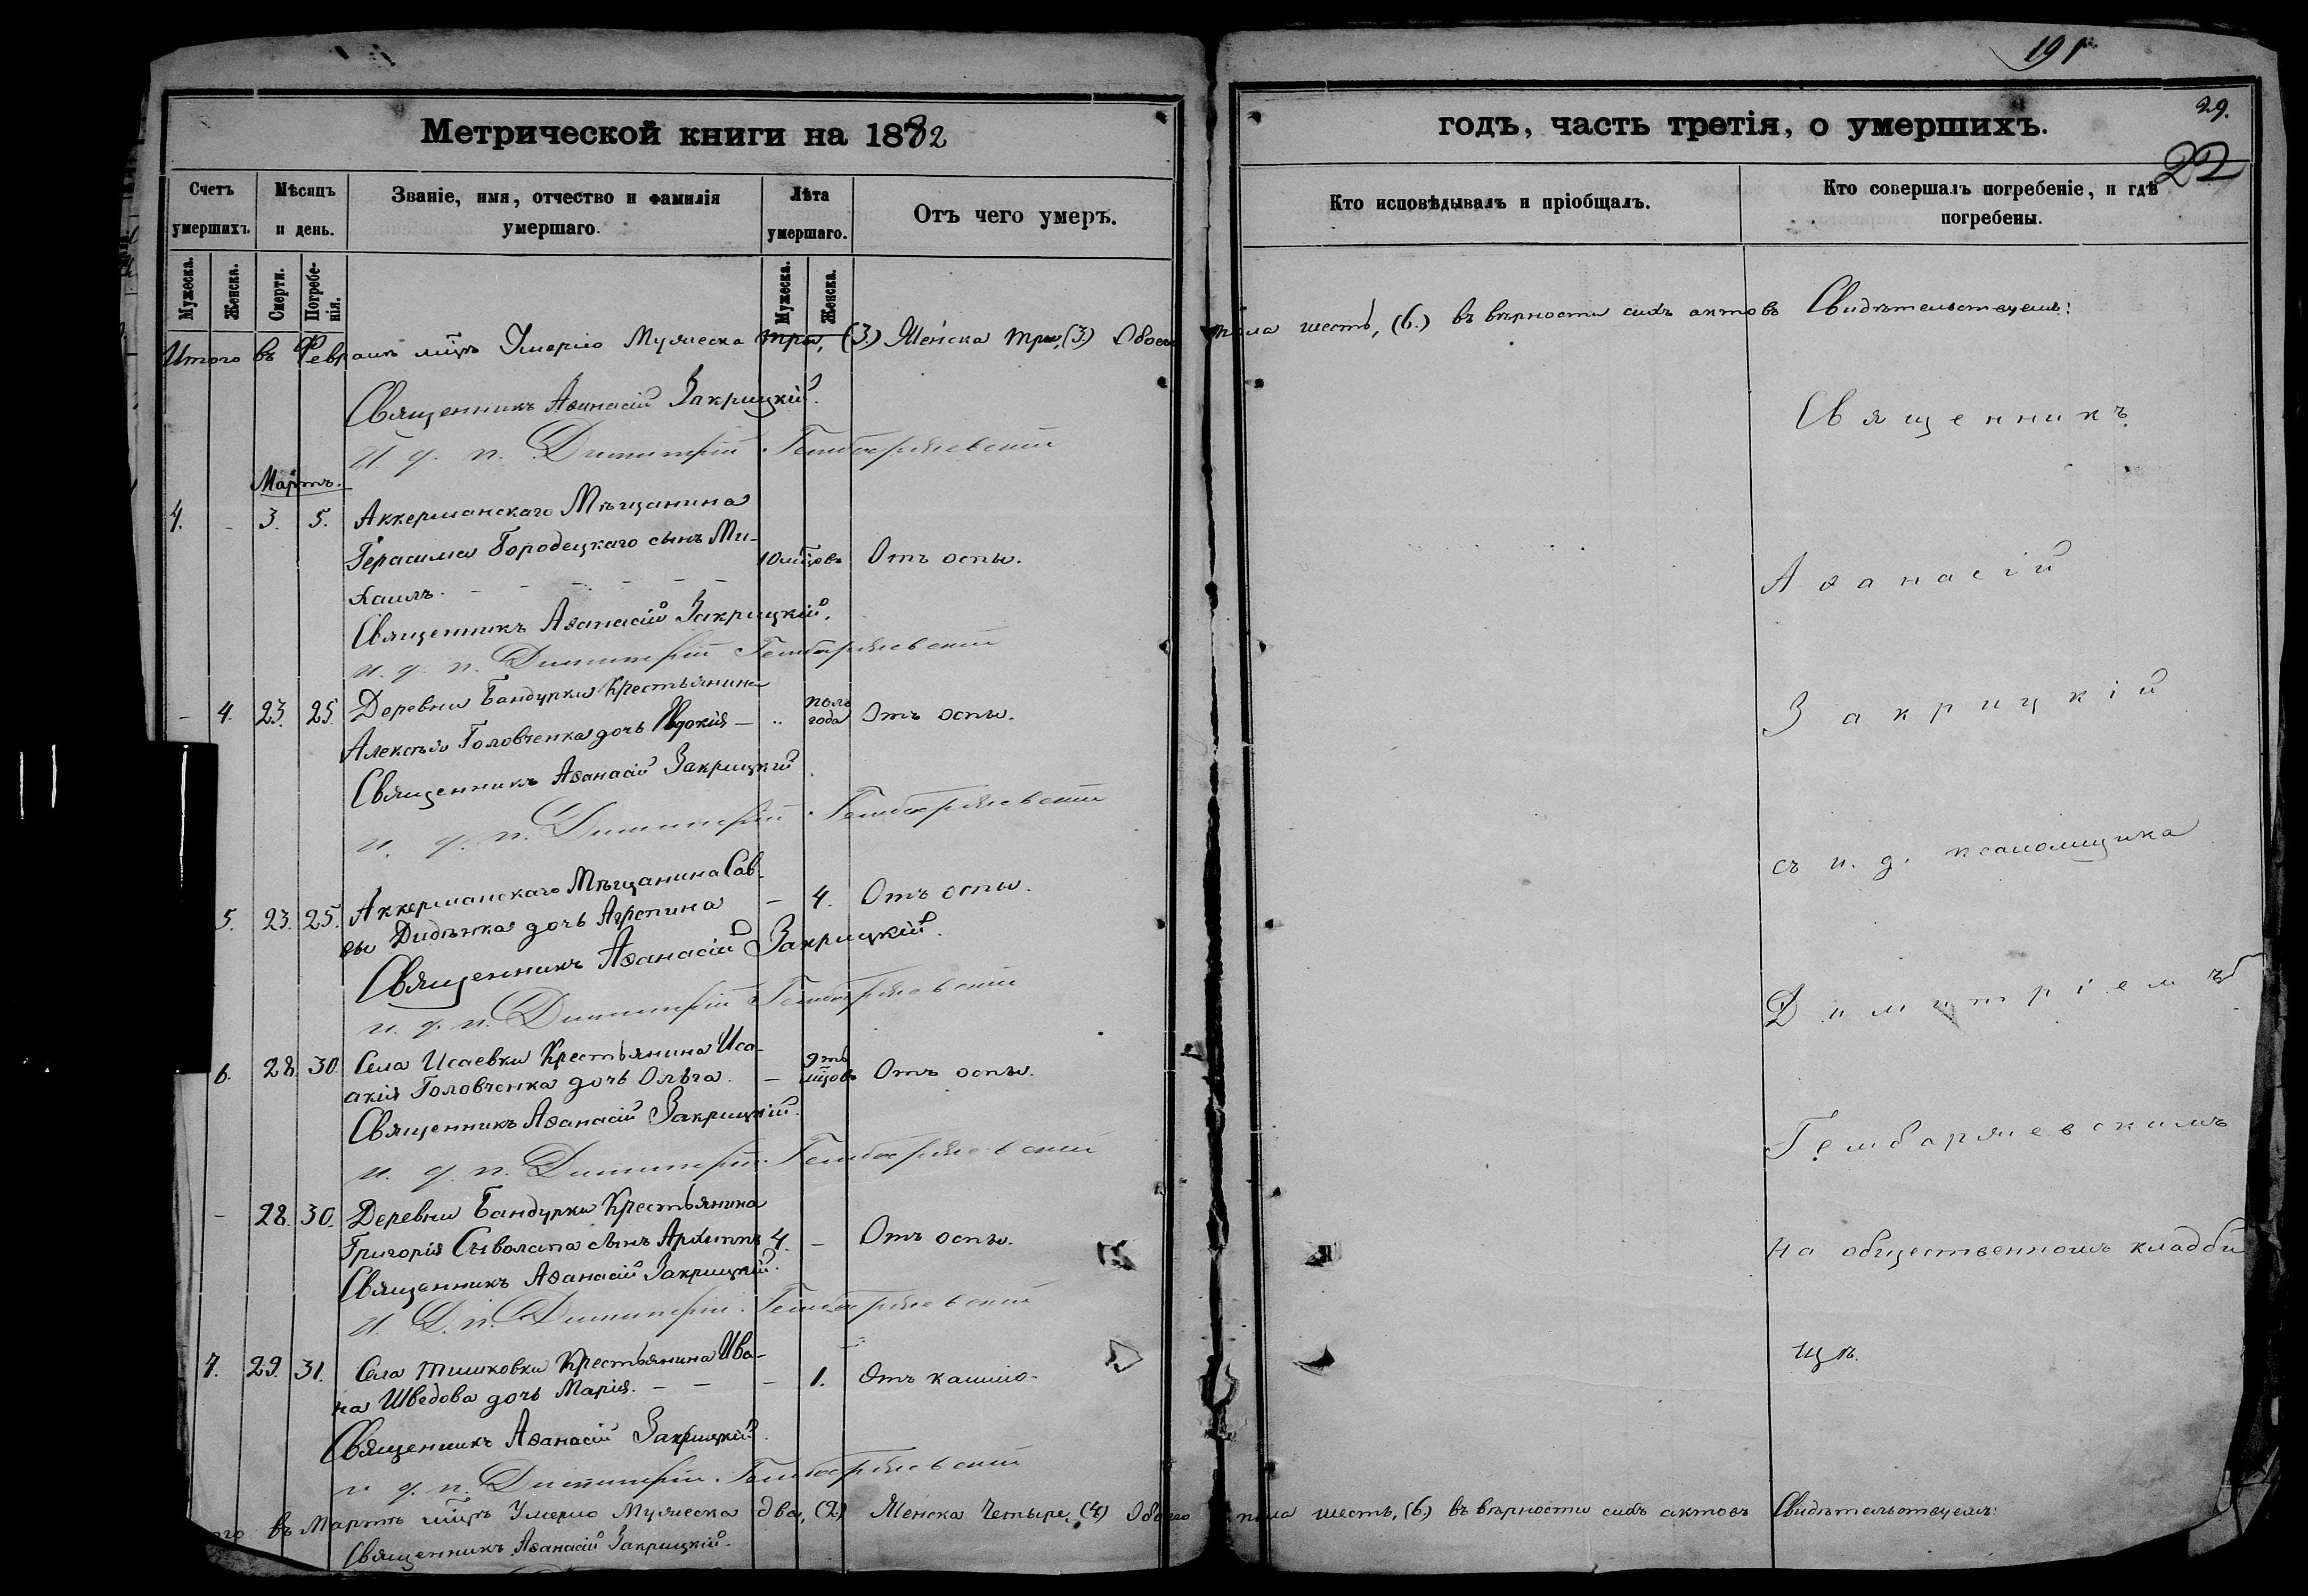 191
29.
22
Метрической книги на 1882
годъ, часть третія, о умершихъ.
Счетъ умершихъ.
Мѣсяцъ и день.
Званіе, имя, отчество и фамилія умершаго.
Лѣта умершаго.
Отъ чего умеръ.
Кто исповѣдывалъ и пріобщалъ.
Кто совершалъ погребеніе, и гдѣ погребены.
Мужеска.
Женска.
Смерти.
Погребенія.
Мужеска.
Женска.
Итого въ Февралѣ мцѣ Умерло Мужеска три, (3.) Женска три, (3.) Обоего пола шесть, (6.) въ вѣрности сихъ актовъ Свидѣтельствуемъ:
Священникъ Аѳанасій Закрицкій.
и. д. п. Димитрій
Мартъ.
4. - 3. 5. Аккерманскаго Мѣщанина
Герасима Городецкаго сынъ Ми-
10 мцовъ Отъ оспы.
хаилъ. - - - - - -
Священникъ Аѳанасій Закрицкій.
и. д. п. Димитрій
- 4. 23. 25. Деревни Бандурки Крестьянина
Алексѣя Головченка дочь Евдокія - „ поль года Отъ оспы.
Священникъ Аѳанасій Закрицкій
и. д. п. Димитрій
5. 23. 25. Аккерманскаго Мѣщанина Сав-
вы Дидѣнка дочь Агрепина - 4. Отъ оспы.
Священникъ Аѳанасій Закрицкій.
и. д. п. Димитрій
6. 28. 30. Села Исаевки Крестьянина Иса-
акія Головченка дочь Ольга. - мцовъ Отъ оспы.
Священникъ Аѳанасій Закрицкій.
и. д. п. Димитрій
- 28. 30. Деревни Бандурки Крестьянина
Григорія Сыволапа сынъ Архиппъ 4. - Отъ оспы.
Священникъ Аѳанасій Закрицкій.
и. д. п. Димитрій
7. 29. 31. Села Тишковки Крестьянина Ива-
на Шведова дочь Марія. - - - 1. Отъ кашлю.
Священникъ Аѳанасій Закрицкій.
и. д. п. Димитрій
въ Мартѣ мцѣ Умерло Мужеска два, (2.) Женска Четыре, (4) Обоего пола шесть, (6.) въ вѣрности сихъ актовъ Свидѣтельствуемъ:
Священникъ Аѳанасій Закрицкій.
Священникъ
Аѳанасій
Закрицкій
съ и. д. псаломщика
Димитріемъ
Гембаржевскимъ
на общественномъ кладби
щѣ.